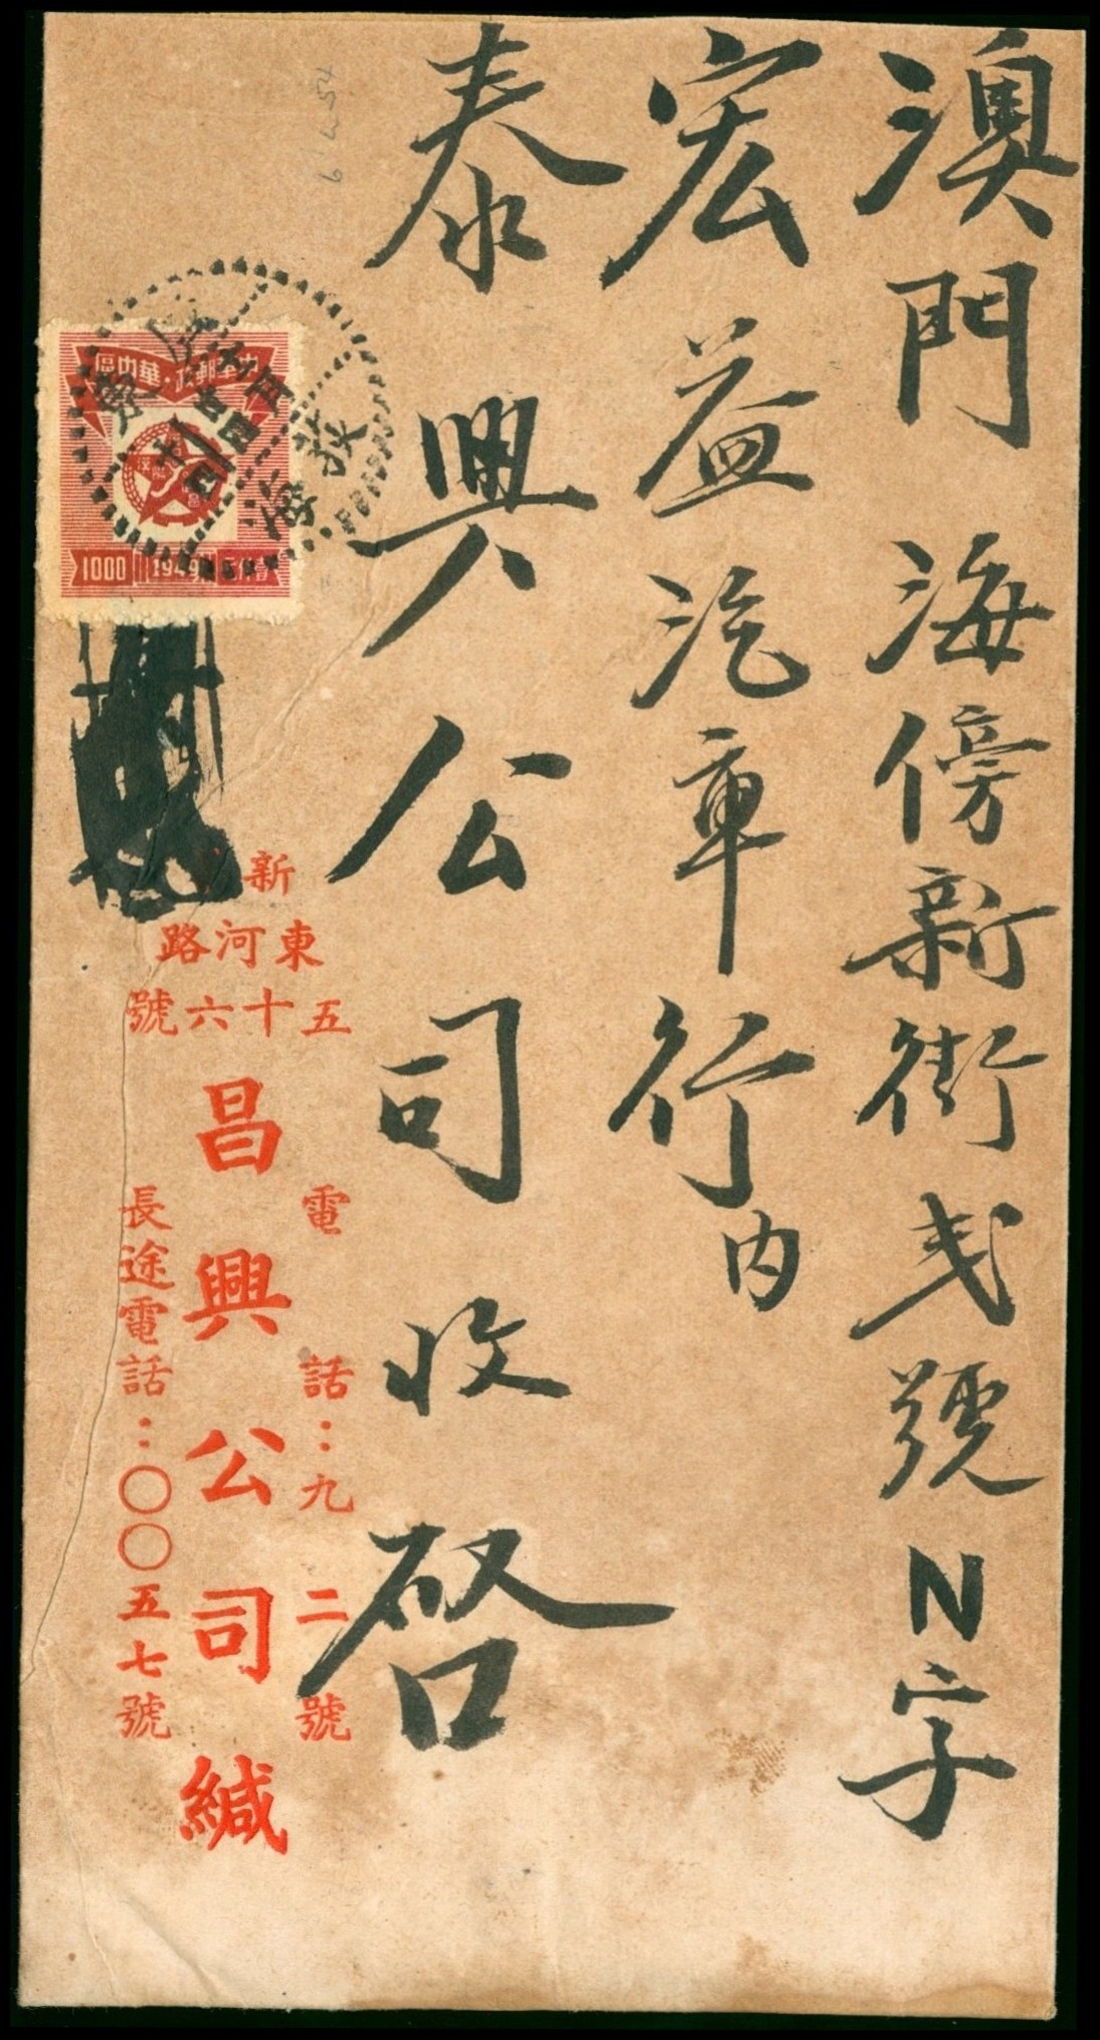 澳門海傍新街弍號N字
宏益汽車行內
泰興公司收啓
中華郵政·華中區
1000
1949
廣東
新
東河路
五十六號
電話：九二號
昌興公司緘
長途電話：〇〇五七號